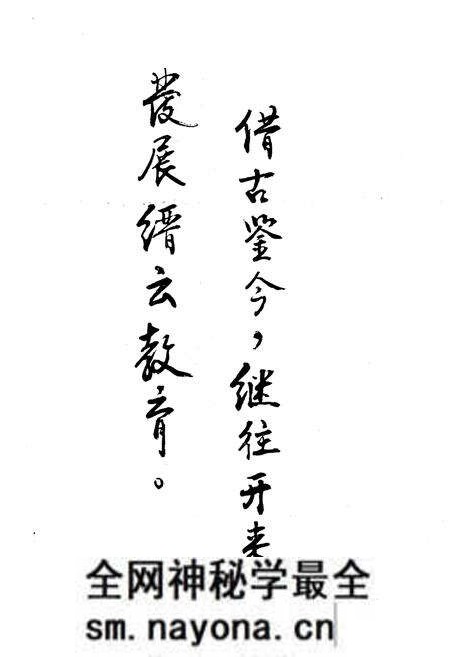 借古鉴今，继往开来
發展缙云教育。
全网神秘学最全
sm.nayona.cn